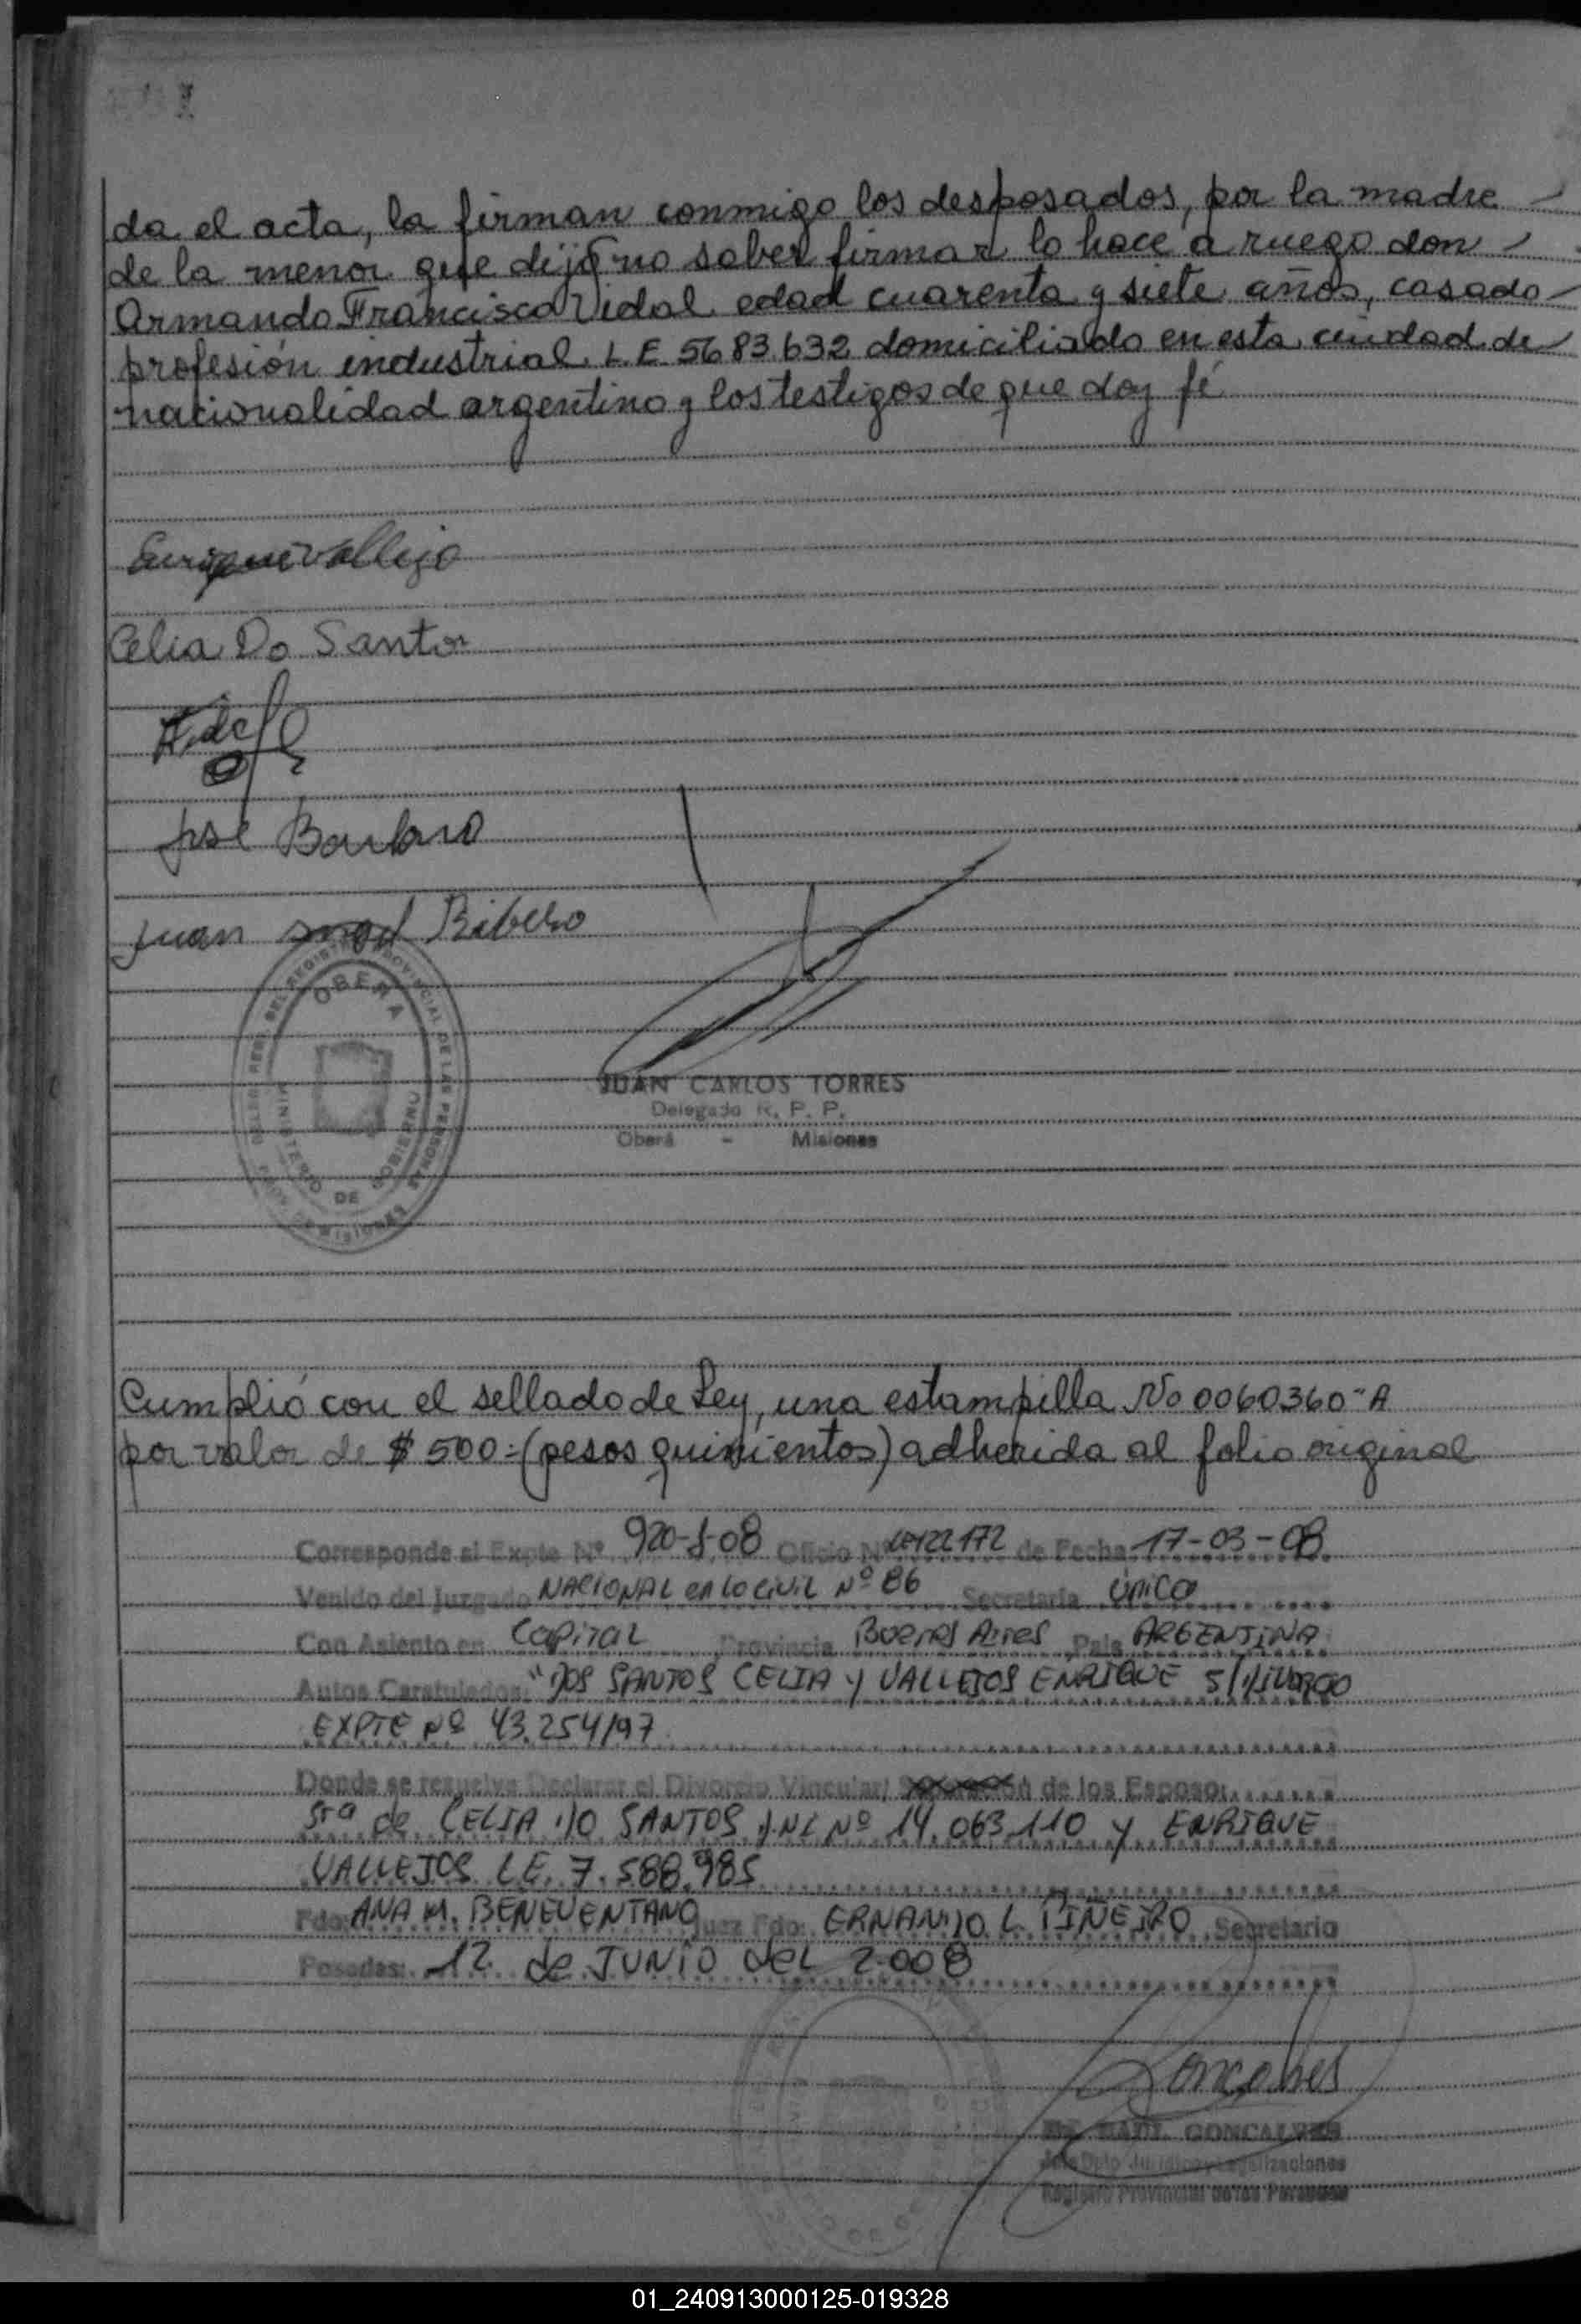 da el acta, la firman conmigo los desposados, por la madre
de la menor que dijo no saber firmar lo hace a ruego don
Armando Francisco Vidal edad cuarenta y siete años, casado
profesión industrial L E 5683632 domiciliado en esta ciudad de
nacionalidad argentino y los testigos de que doy fé
Enrique Vallejo
Celia Do Santos
José Barbaro
Juan Ribero
OBERA
MINISTERIO DE GOBIERNO
JUAN CARLOS TORRES
Delegado R. P. P.
Oberá - Misiones
Cumplió con el sellado de Ley, una estampilla No 0060360-A
por valor de $ 500.= (pesos quinientos) adherida al folio original
Corresponde al Expte Nº 920-J-08 Oficio Nº de Fecha 17-03-08
Venido del Juzgado NACIONAL en lo CiViL Nº 86 Secretaria Única
Con Asiento en Capital Provincia Buenos Aires Pais ARGENTINA
Autos Caratulados: "DOS SANTOS CELIA y VALLEJOS ENRIQUE S/DIVORCIO
EXPTE Nº 43.254/97
Donde se resuelve Declarar el Divorcio Vincular/ Separación de los Esposo:
Sra de CELIA DO SANTOS DNI Nº 14.063.110 y ENRIQUE
VALLEJOS L.E. 7.588.985
Fdo: ANA M. BENEVENTANO Juez Fdo: ERNANDO L. PIÑEIRO Secretario
Posadas: 12 de JUNIO del 2.008
Goncalves
RAUL GONCALVES
Jefe Dpto Juridico y Legalizaciones
Registro Provincial de las Personas
01_240913000125-019328